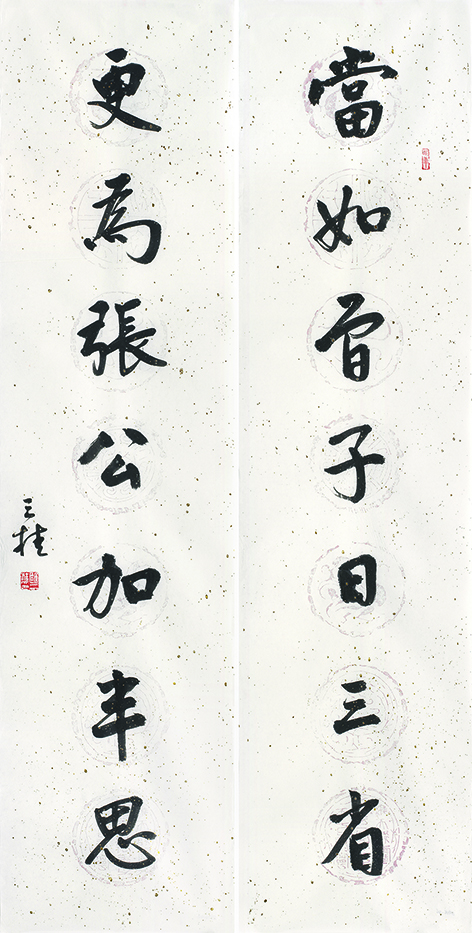 當如曾子日三省
更為張公加半思
三桂